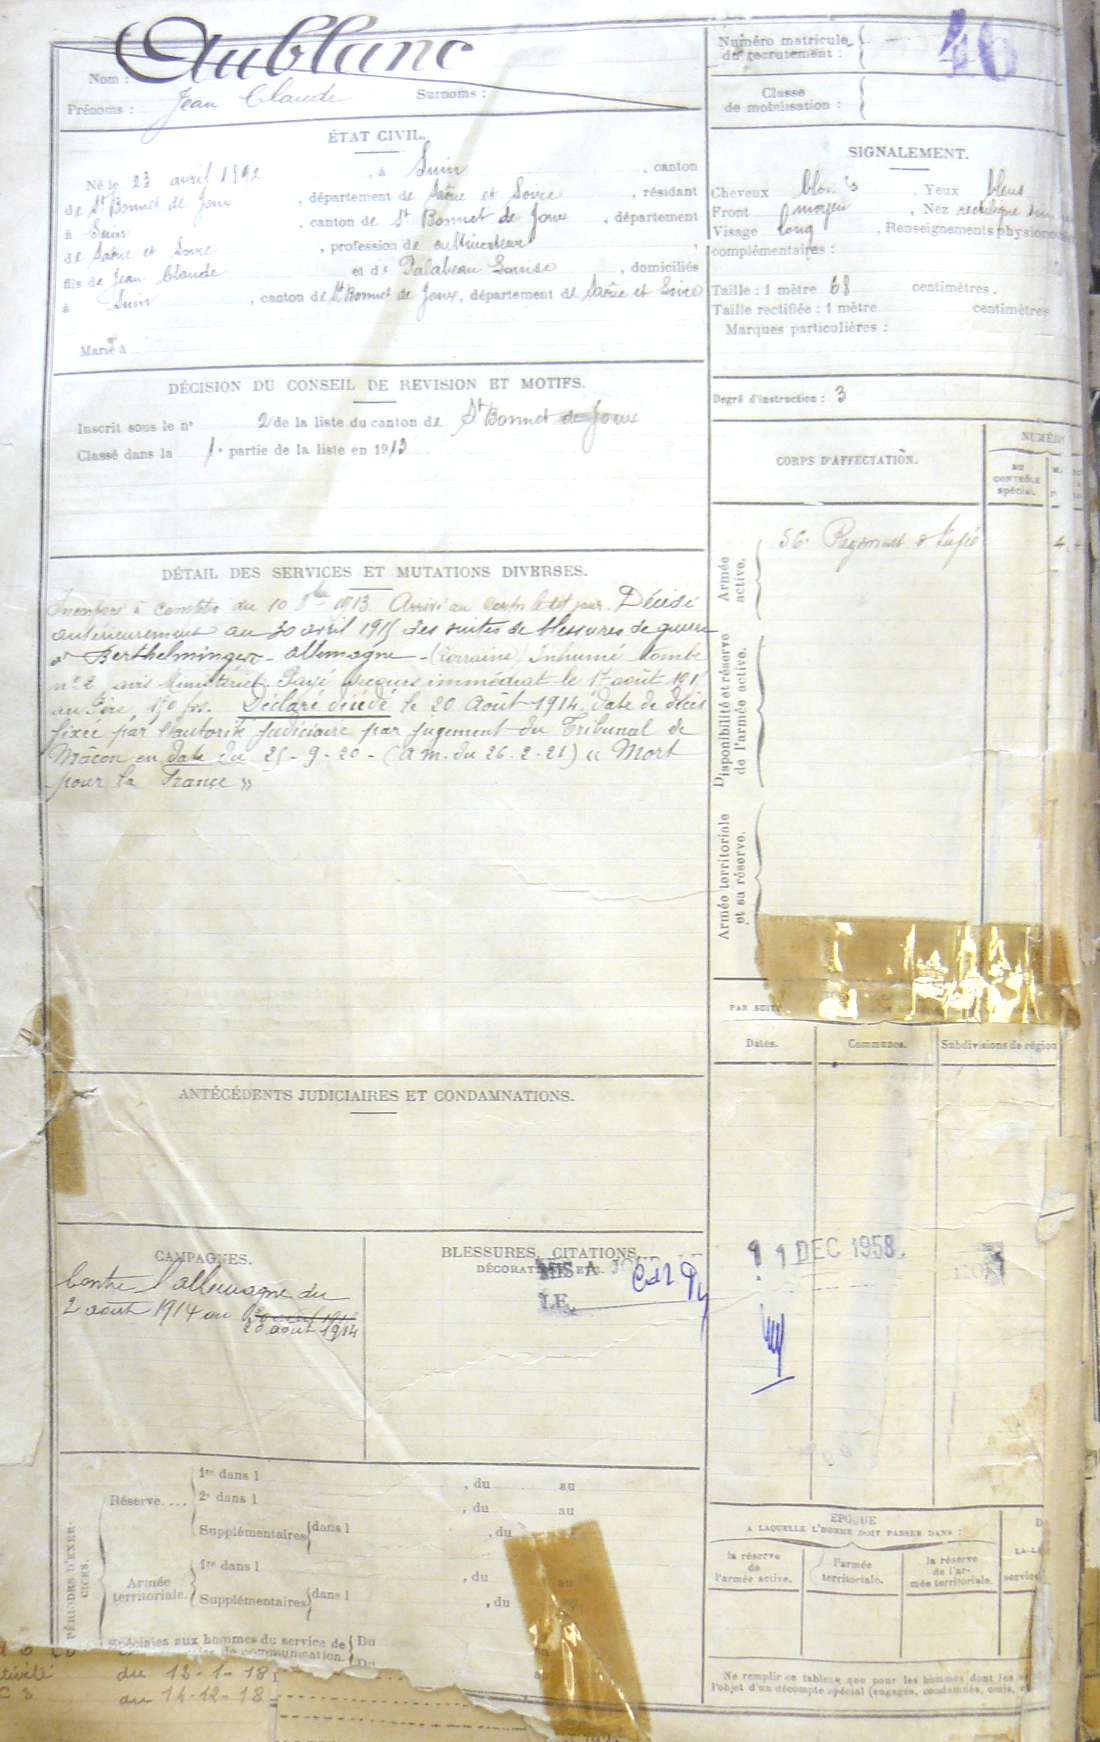 Aublanc
Nom :
Prénoms : Jean Claude Surnoms :
Numéro matricule du recrutement : 46
Classe de mobilisation :
ÉTAT CIVIL.
Né le 23 avril 1892, à Suin, canton
de St Bonnet de Joux, département de Saône et Loire, résidant
à Suin, canton de St Bonnet de Joux, département
de Saône et Loire, profession de cultivateur,
fils de Jean Claude et de Palabeau Louise, domiciliés
à Suin, canton de St Bonnet de Joux, département de Saône et Loire
Marié à
SIGNALEMENT.
Cheveux Yeux bleus
Front moyen, Nez rectiligne
Visage long, Renseignements
complémentaires :
Taille : 1 mètre 68 centimètres.
Taille rectifiée : 1 mètre centimètres
Marques particulières :
Degré d'instruction : 3
DÉCISION DU CONSEIL DE REVISION ET MOTIFS.
Inscrit sous le n° 2 de la liste du canton de St Bonnet de Joux
Classé dans la 1e partie de la liste en 1913
CORPS D'AFFECTATION.
AU CONTRÔLE spécial.
Armée active.
56e
Disponibilité et réserve de l'armée active.
Armée territoriale et sa réserve.
DÉTAIL DES SERVICES ET MUTATIONS DIVERSES.
Incorporé à compter du 10 8bre 1913. Arrivé au corps le dit jour. Décédé
antérieurement au 30 avril 1915 des suites de blessures de guerre
à Berthelminger - Allemagne - (Lorraine) Inhumé tombe
n° 2 avis Ministériel. Payé secours immédiat le 17 août 191
au Père 150 frs. Déclaré décédé le 20 Août 1914. date de décès
fixée par l'autorité judiciaire par jugement du Tribunal de
Mâcon en date du 25-9-20 - (a m. du 26-2-21) « Mort
pour la France »
PAR SUITE
Dates. Communes. Subdivisions de région
ANTÉCÉDENTS JUDICIAIRES ET CONDAMNATIONS.
CAMPAGNES.
Contre l'Allemagne du
2 août 1914 au
20 août 1914
BLESSURES, CITATIONS,
DÉCORATIONS, ETC.
MIS A JOUR
LE
11 DEC 1958
PÉRIODES D'EXERCICES.
Réserve....
1re dans l , du au
2e dans l , du au
Supplémentaires dans l , du
Armée territoriale.
1re dans l , du au
Supplémentaires dans l , du
Spéciales aux hommes du service de Du
communication. Du
du 13-1-18
au 14-12-18
ÉPOQUE
A LAQUELLE L'HOMME DOIT PASSER DANS :
la réserve de l'armée active.
l'armée territoriale.
la réserve de l'armée territoriale.
Ne remplir ce tableau que pour les hommes dont les
l'objet d'un décompte spécial (engagés, condamnés, omis,